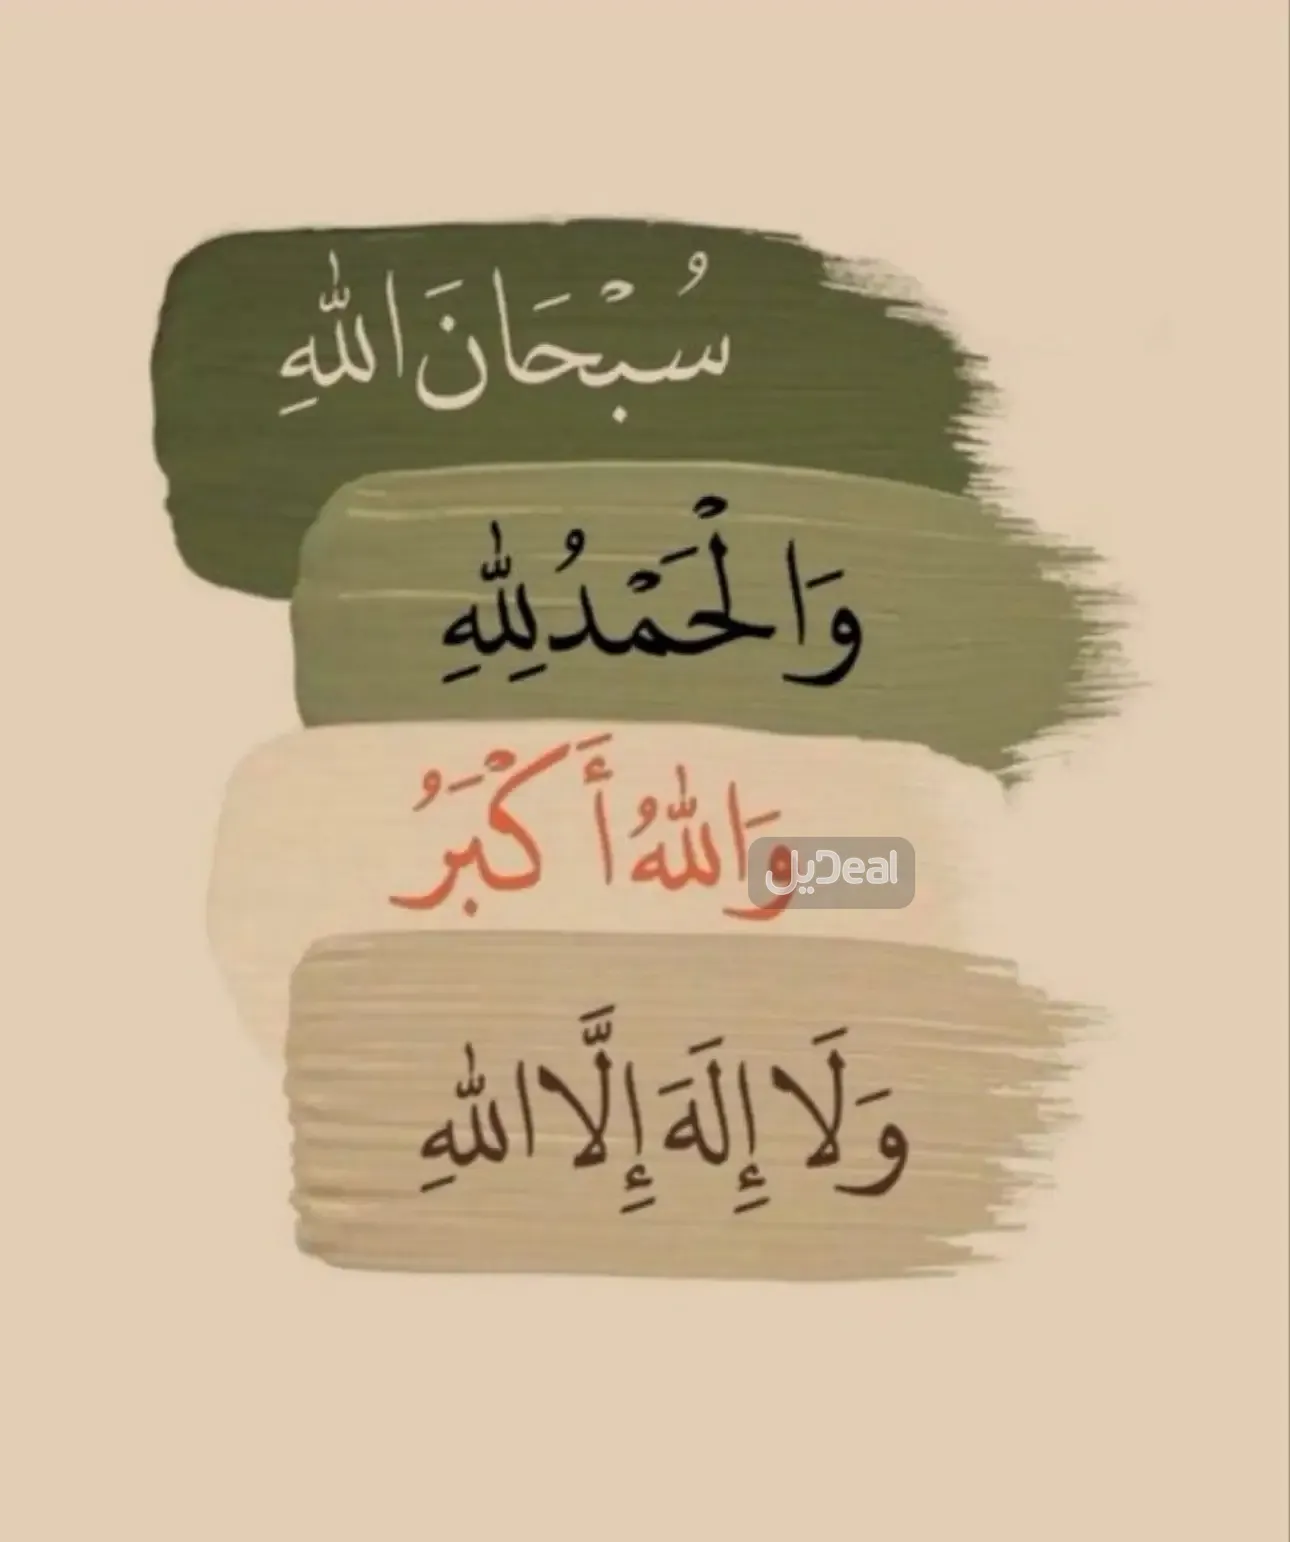 سُبْحَانَ اللهِ
وَالْحَمْدُ لِلهِ
وَاللهُ أَكْبَرُ
ديلDeal
وَلَا إِلَهَ إِلَّا اللهِ